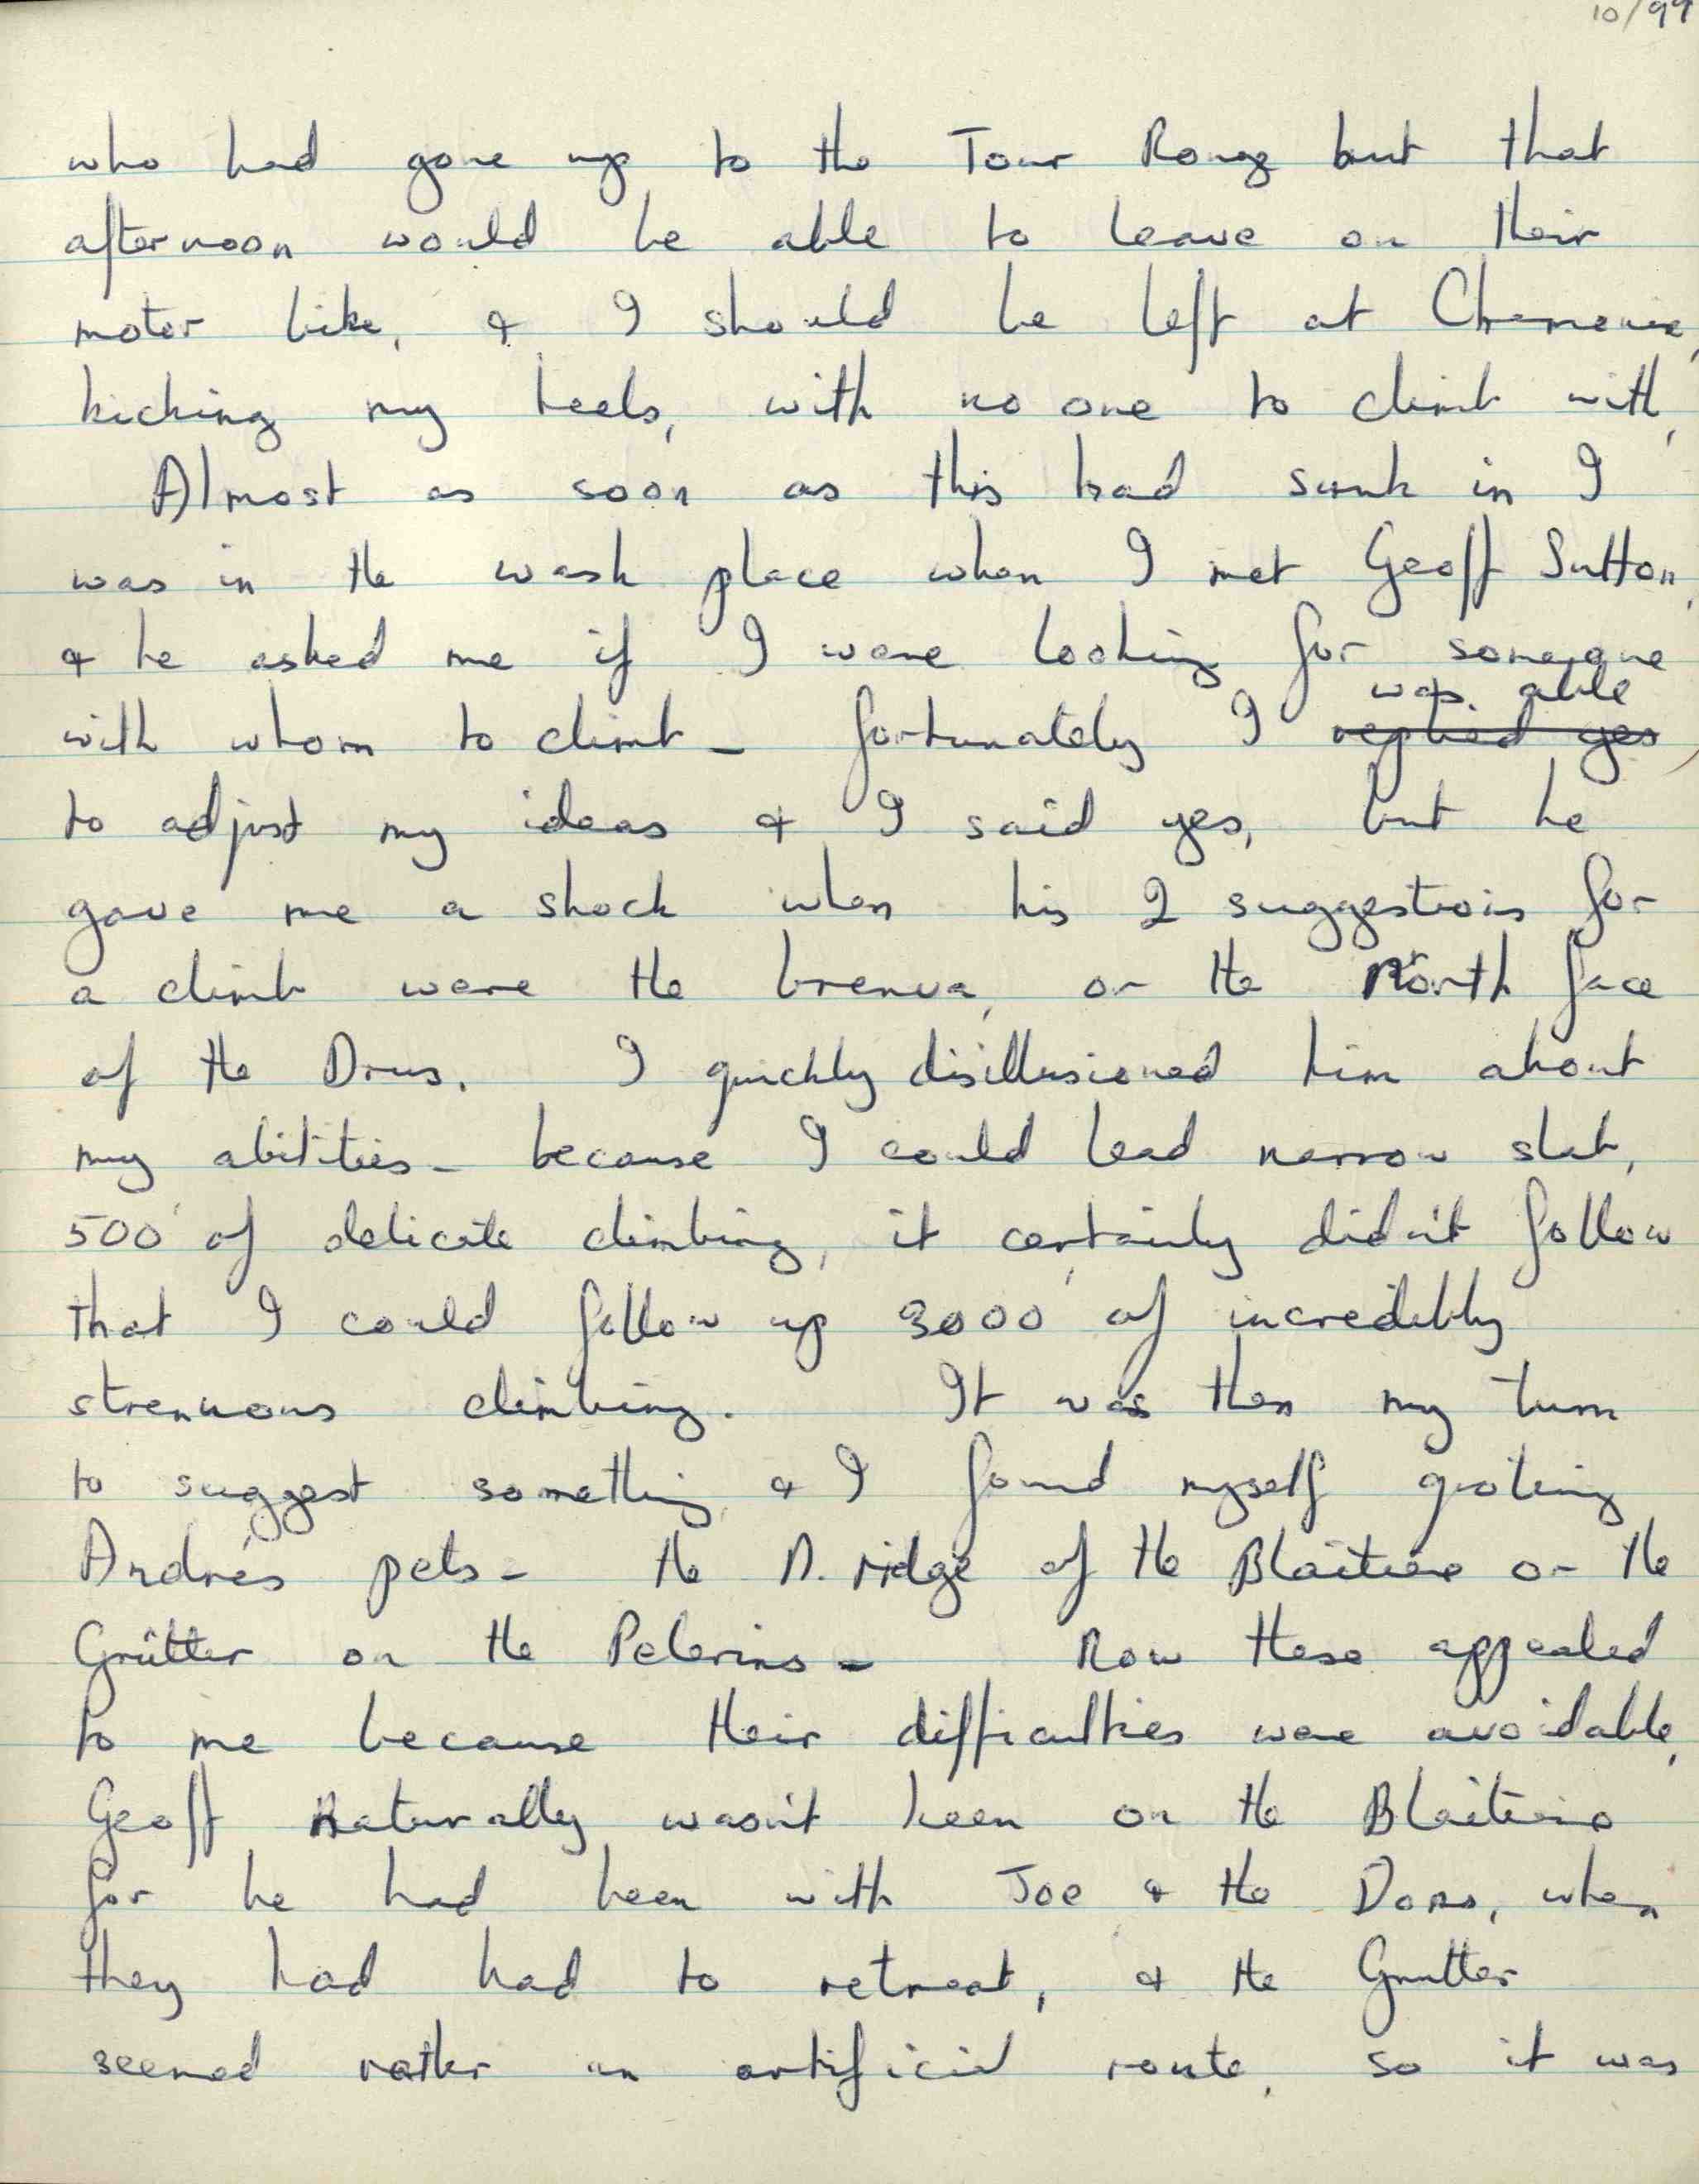 10/99
who had gone up to the Tour Rong but that
afternoon would be able to leave on their
motor bike, & I should be left at Chamonix,
kicking my heels, with no one to climb with,
Almost as soon as this had sunk in I
was in the wash place when I met Geoff Sutton,
& he asked me if I were looking for someone
was able
with whom to climb - fortunately I replied yes,
to adjust my ideas & I said yes, but he
gave me a shock when his 2 suggestions for
a climb were the brenva, or the North face
of the Drus. I quickly disillusioned him about
my abilities - because I could lead narrow slab,
500' of delicate climbing, it certainly didn't follow
that I could follow up 3000' of incredibly
strenuous climbing. It was then my turn
to suggest something, & I found myself quoting
André's pets - the N. ridge of the Blaitiere or the
Grütter on the Pelerins - Now these appealed
to me because their difficulties were avoidable,
Geoff naturally wasn't keen on the Blaitiere
for he had been with Joe & the Dons, when
they had had to retreat, & the Grutter
seemed rather an artificial route, so it was